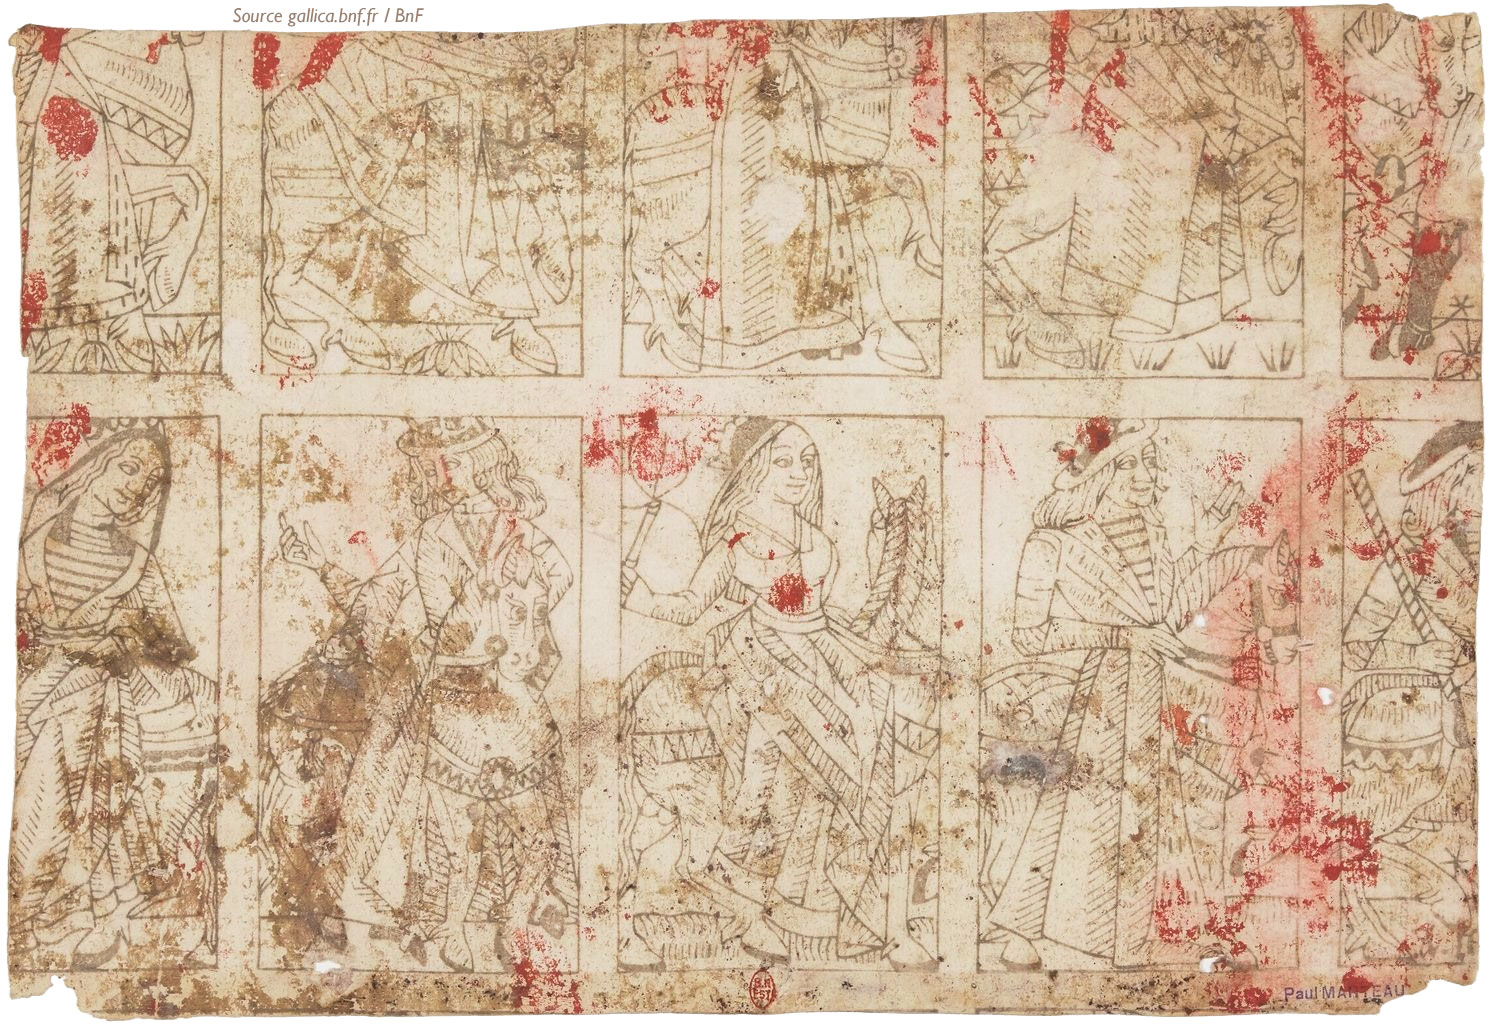 Source gallica.bnf.fr / BnF
B.N
EST
Paul MARTEAU